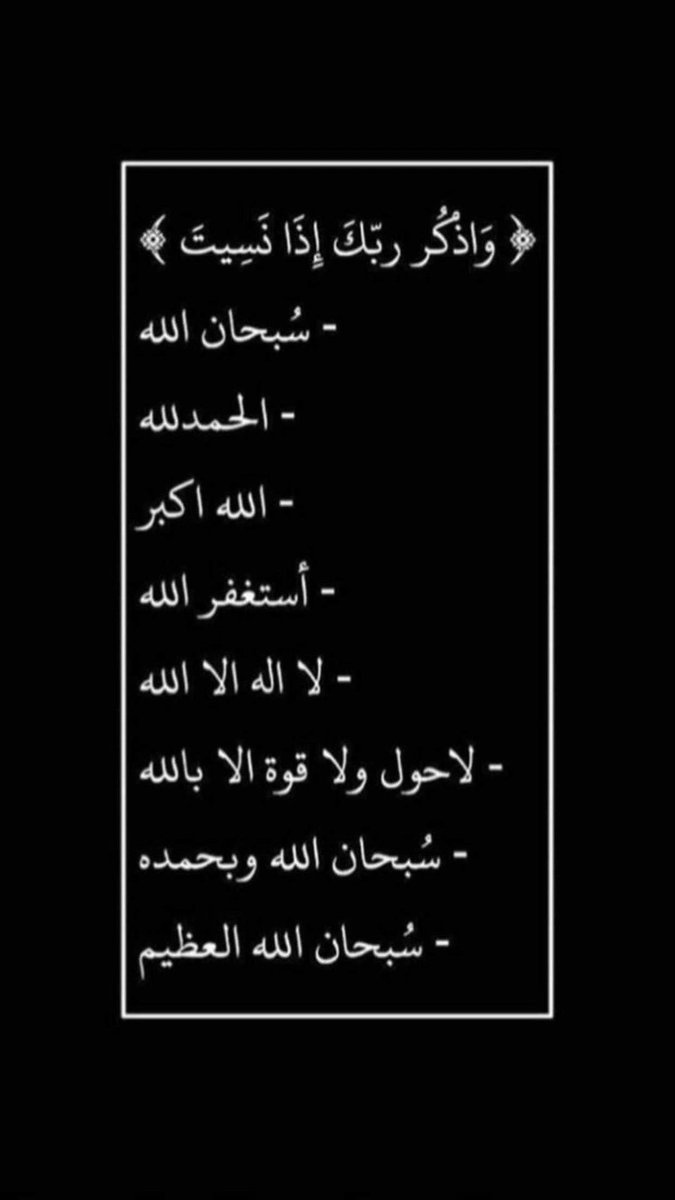 ﴿ وَاذْكُر ربّكَ إِذَا نَسِيتَ ﴾
- سُبحان الله
- الحمدلله
- الله اكبر
- أستغفر الله
- لا اله الا الله
- لاحول ولا قوة الا بالله
- سُبحان الله وبحمده
- سُبحان الله العظيم